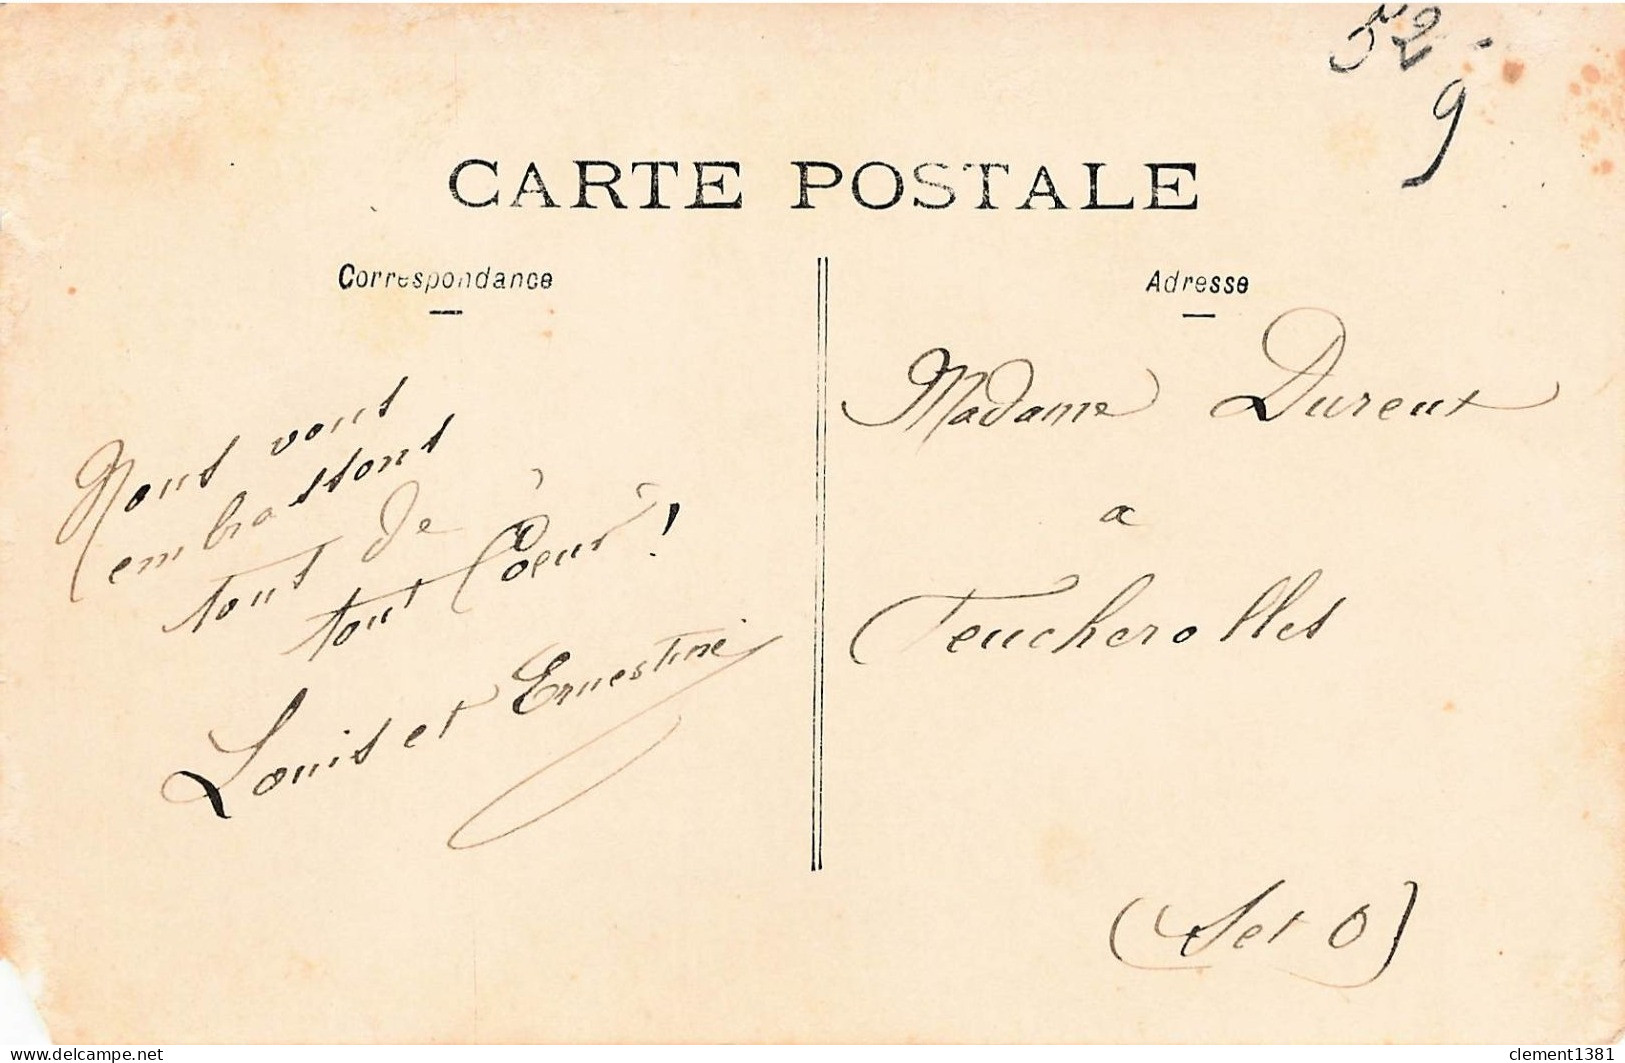 52
9
CARTE POSTALE
Correspondance
Adresse
Nous vous
embrassons
tout de
tout Coeur !
Louis et Ernestine
Madame Dureux
a
Feucherolles
(S et O)
delcampe.net
clement1381